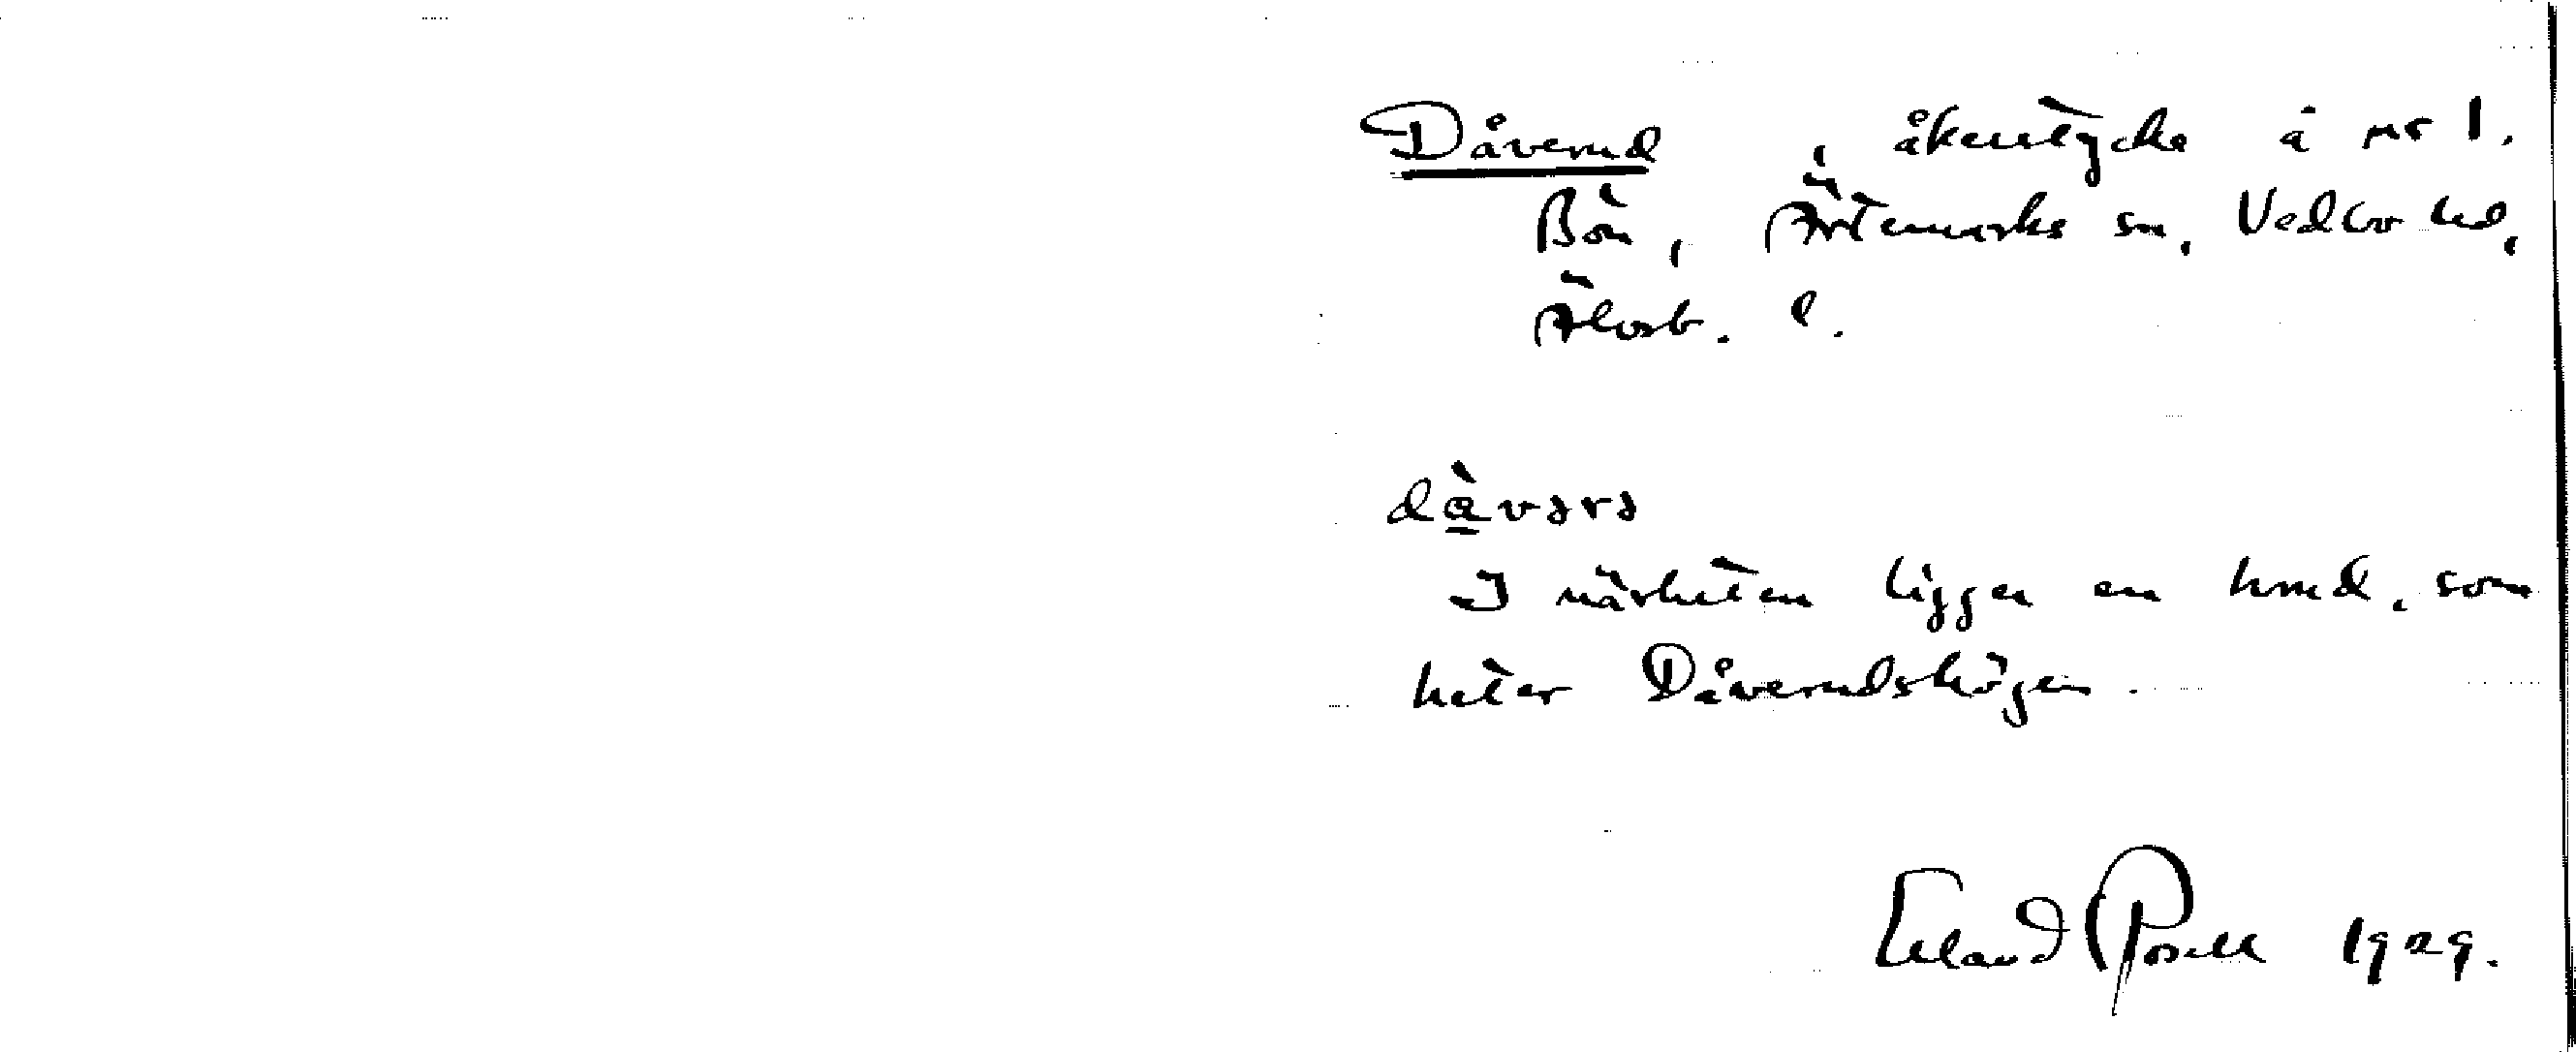 Dåverud, åkerstycke å nr 1.
Bön, Ärtemarks sn, Vedbo hd,
Älvsb. l.
då̀vərə
I närheten ligger en hmd, som
heter Dåverudshögen.
Erland Rosell 1929.